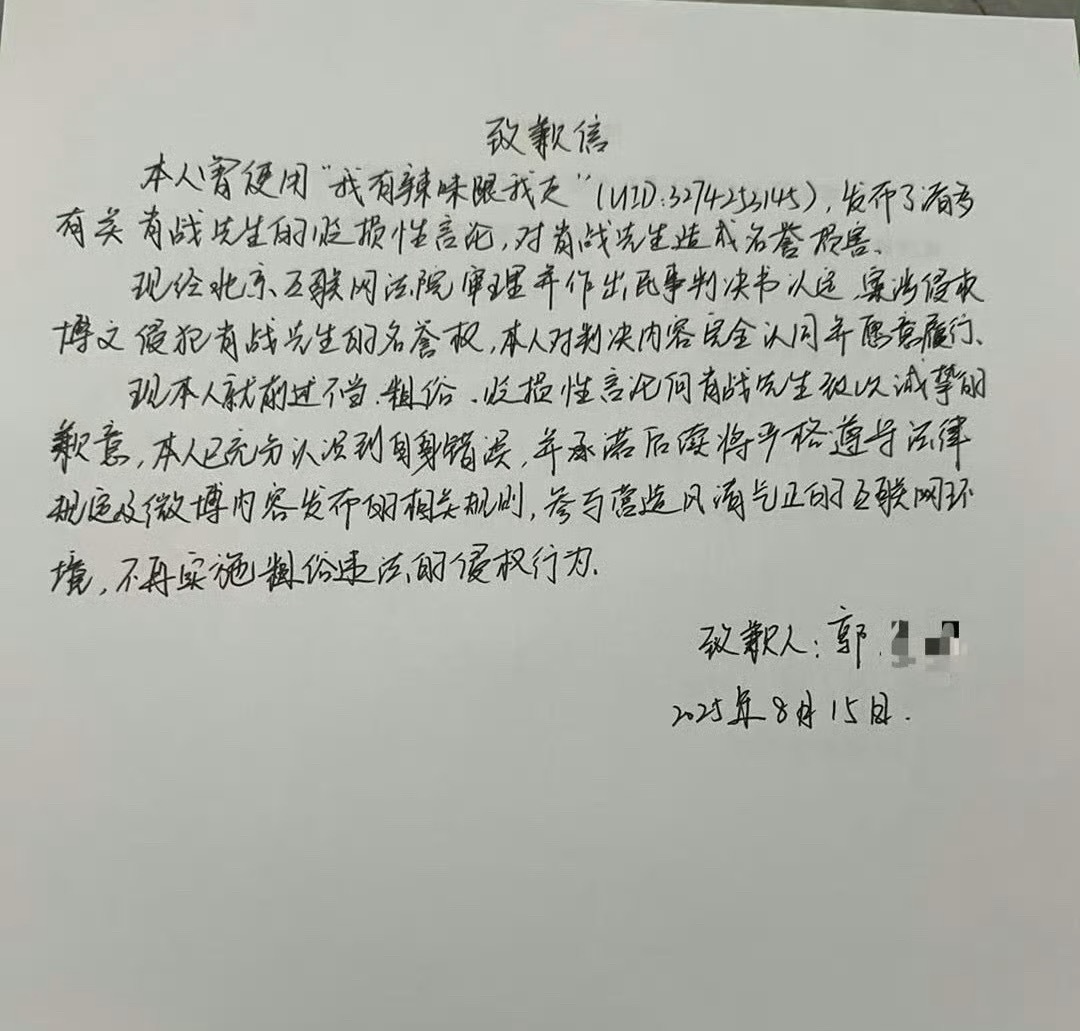 致歉信
本人曾使用“我有辣味跟我走”(UID:3274253145),发布了诸多
有关肖战先生的贬损性言论,对肖战先生造成名誉损害。
现经北京互联网法院审理并作出民事判决书认定,案涉侵权
博文侵犯肖战先生的名誉权,本人对判决内容完全认同并愿意履行。
现本人就前述不当、粗俗、贬损性言论向肖战先生致以诚挚的
歉意,本人已充分认识到自身错误,并承诺后续将严格遵守法律
规定及微博内容发布的相关规则,参与营造风清气正的互联网环
境,不再实施粗俗违法的侵权行为.
致歉人:郭
2025年8月15日.